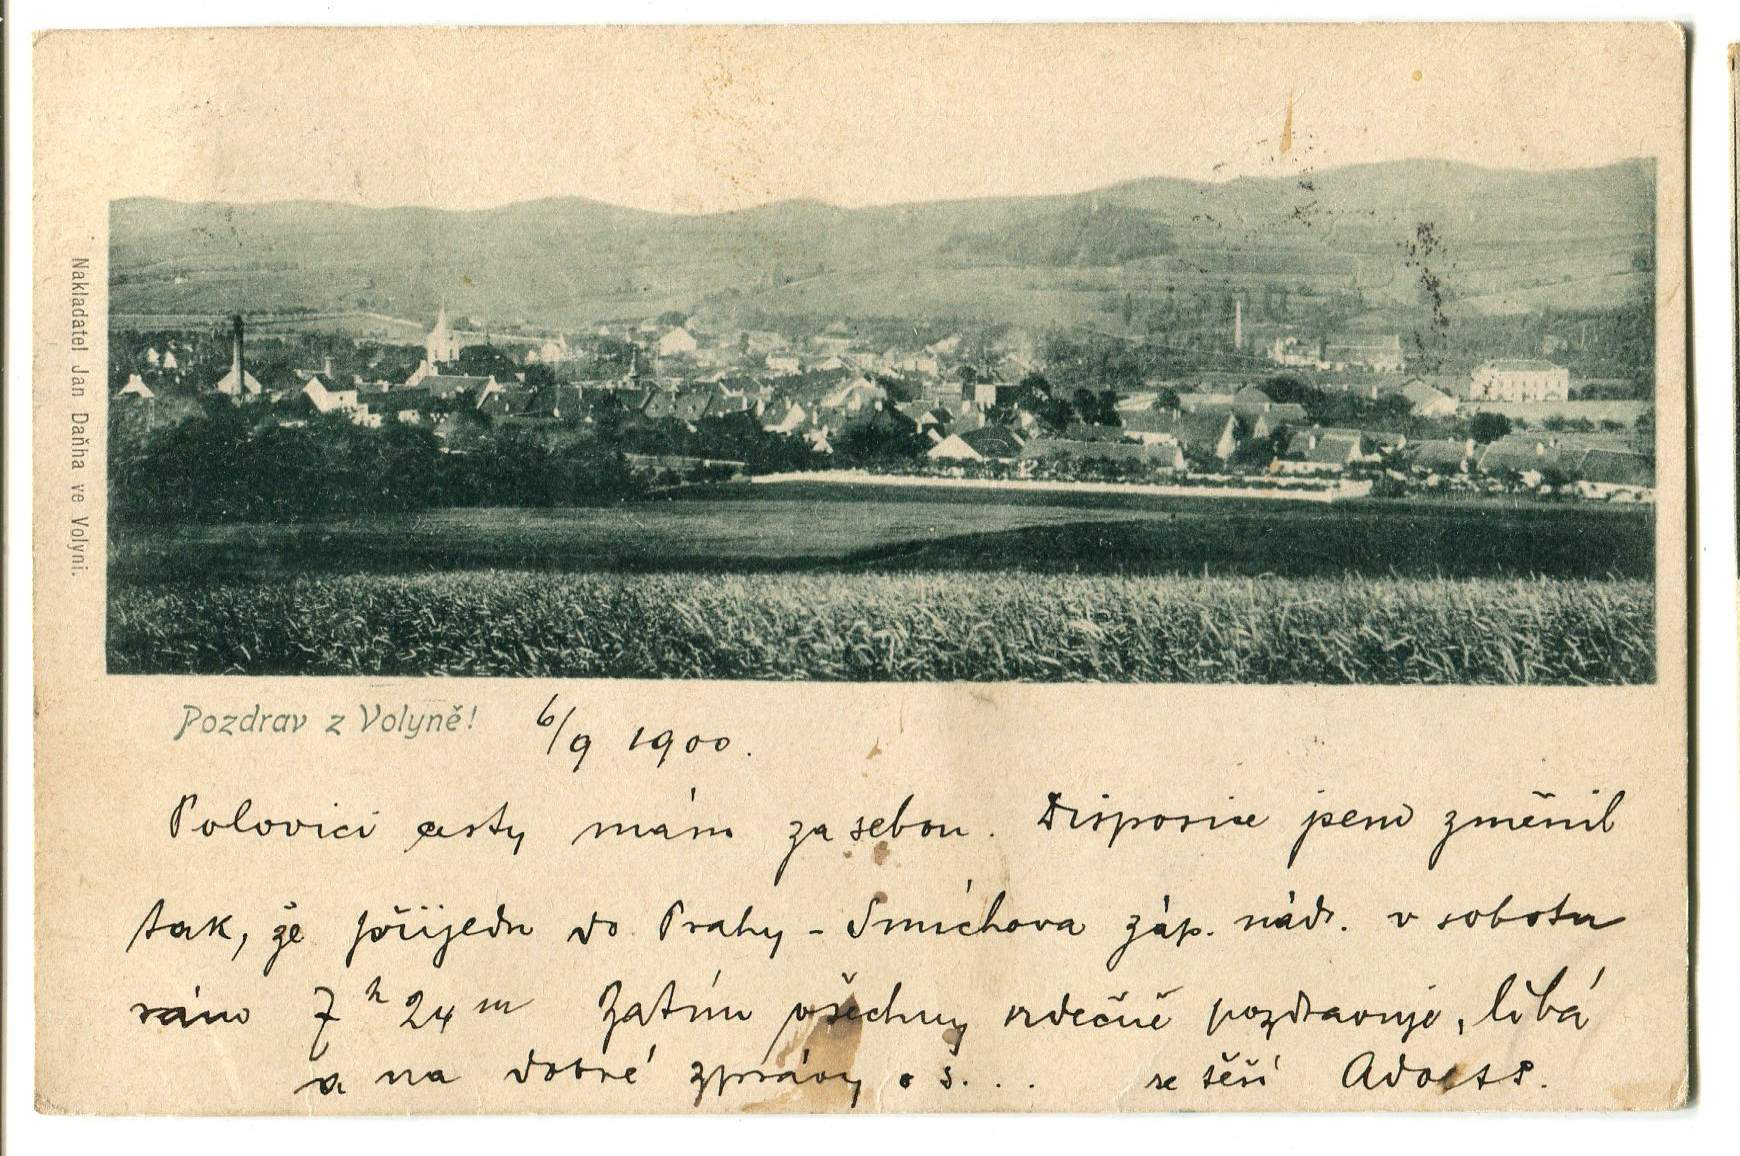 Nakladatel Jan Daňha ve Volyni.
Pozdrav z Volyně!
6/9 1900.
Polovici cesty mám za sebou. Disposice jsem změnil
tak, že přijedu do Prahy - Smíchova záp. nádr. v sobotu
ráno 7 h 24 m Zatím všechny srdečně pozdravuje, líbá
a na dobré zprávy o s... se těší